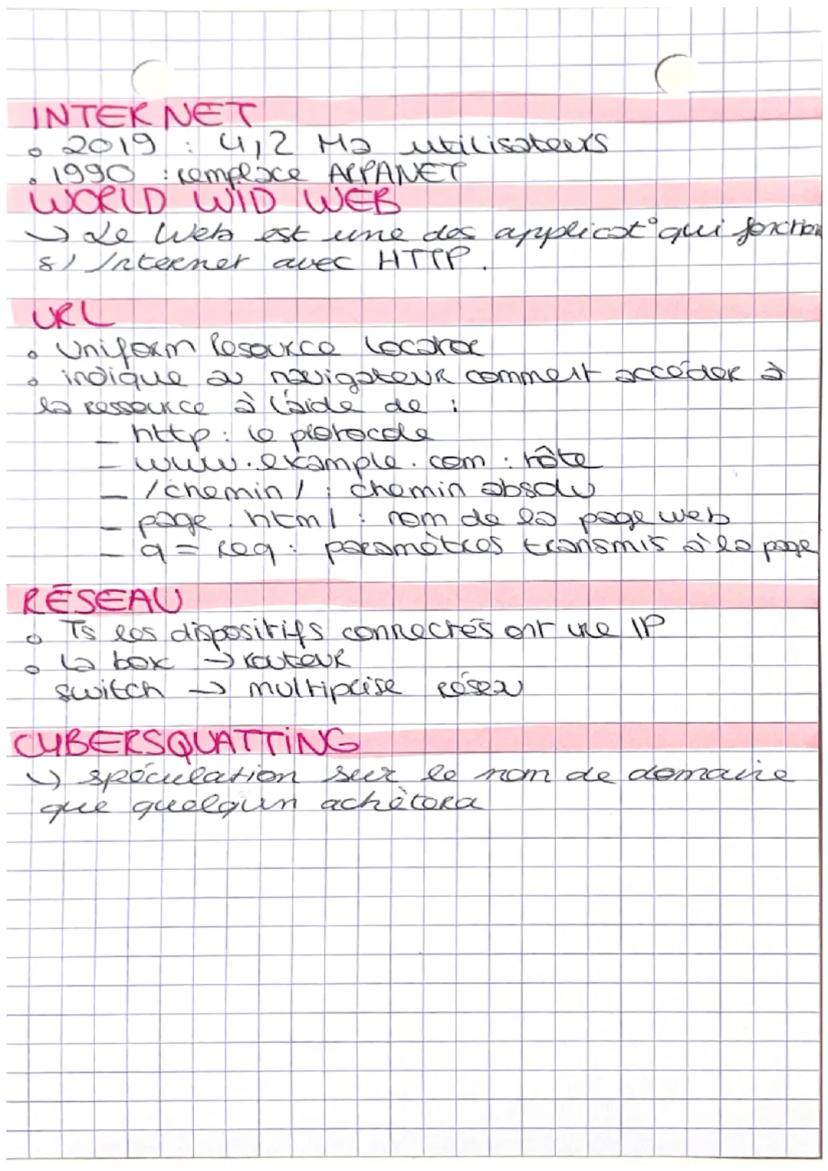 INTERNET
• 2019 : 4,2 Md utilisateurs
• 1990 : remplace ARPANET
WORLD WID WEB
↳ Le Web est une des applicat° qui fonction
s/ Internet avec HTTP.
URL
• Uniform Resource Locator
• indique au navigateur comment accéder à
la ressource à l'aide de :
– http : le protocole
– www.example.com : hôte
– /chemin/ : chemin absolu
– page.html : nom de la page web
– q = req : paramètres transmis à la page
RÉSEAU
• Ts les dispositifs connectés ont une IP
• La box → routeur
switch → multiprise réseau
CYBERSQUATTING
↳ spéculation sur le nom de domaine
que quelqun achètera